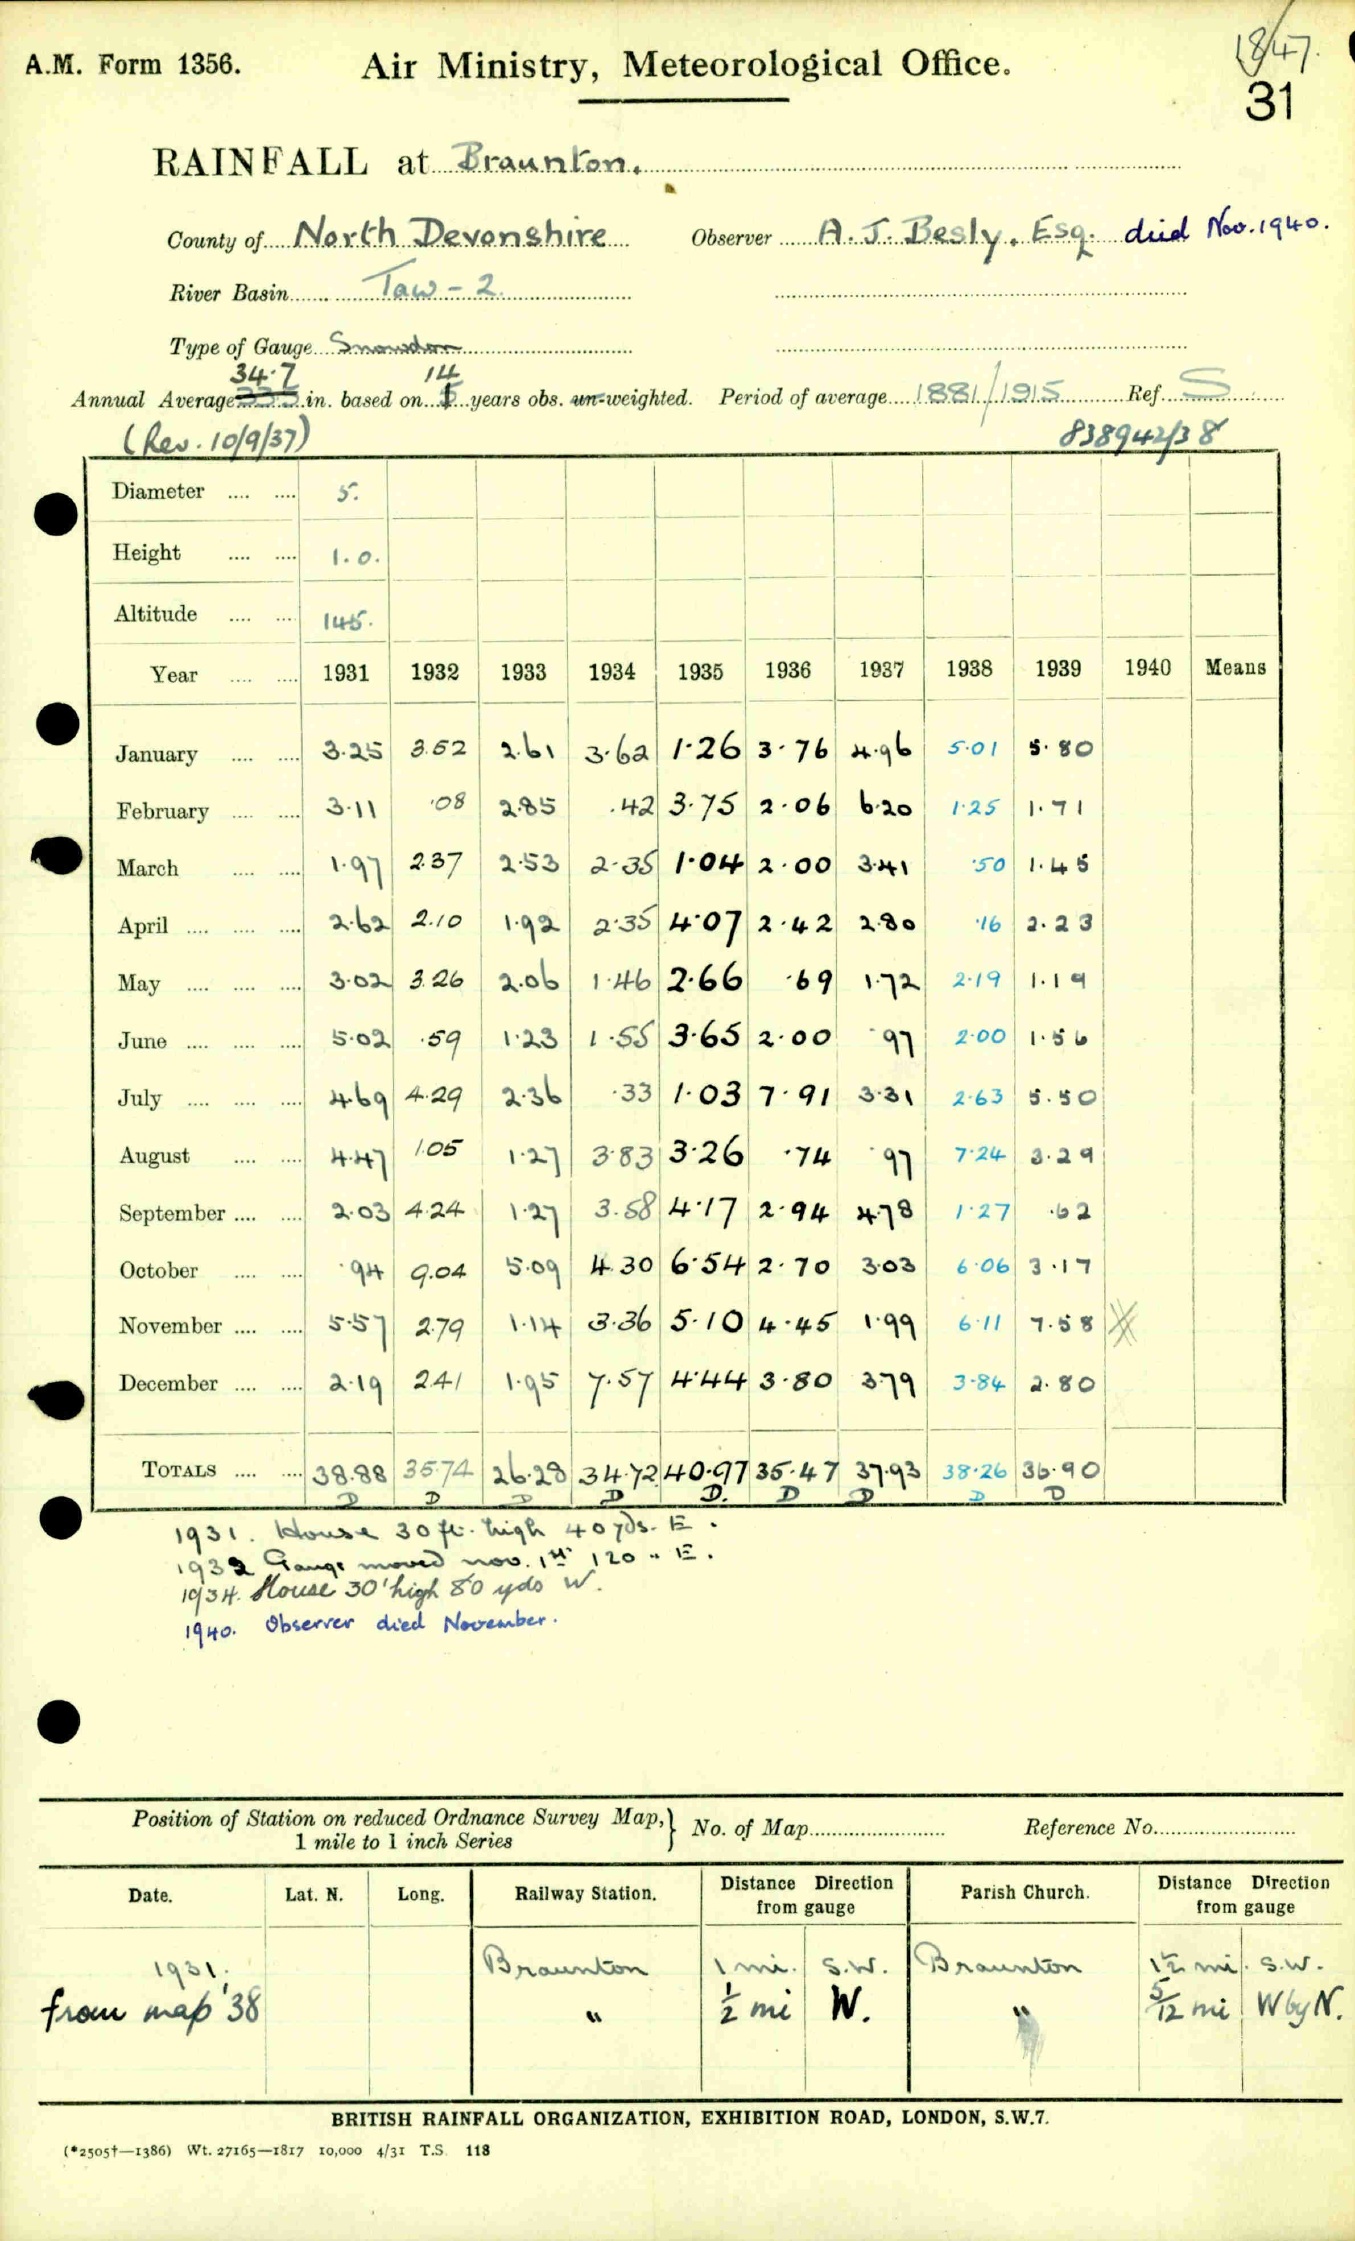 18/47.
A.M. Form 1356. Air Ministry, Meteorological Office.
31
RAINFALL at Braunton.
County of North Devonshire Observer A. J. Besly, Esq. died Nov. 1940.
River Basin Taw - 2
Type of Gauge Snowdon
34.7 14
Annual Average in. based on years obs. un-weighted. Period of average 1881/1915 Ref. S
(Rev. 10/9/37) 838942/38
Diameter .... .... 5.
Height .... .... 1.0.
Altitude .... .... 145.
Year .... .... 1931 1932 1933 1934 1935 1936 1937 1938 1939 1940 Means
January .... .... 3.25 3.52 2.61 3.62 1.26 3.76 4.96 5.01 5.80
February .... .... 3.11 .08 2.85 .42 3.75 2.06 6.20 1.25 1.71
March .... .... 1.97 2.37 2.53 2.35 1.04 2.00 3.41 .50 1.45
April .... .... .... 2.62 2.10 1.92 2.35 4.07 2.42 2.80 .16 2.23
May .... .... .... 3.02 3.26 2.06 1.46 2.66 .69 1.72 2.19 1.19
June .... .... .... 5.02 .59 1.23 1.55 3.65 2.00 .97 2.00 1.56
July .... .... .... 4.69 4.29 2.36 .33 1.03 7.91 3.31 2.63 5.50
August .... .... 4.47 1.05 1.27 3.83 3.26 .74 .97 7.24 3.29
September .... .... 2.03 4.24 1.27 3.58 4.17 2.94 4.78 1.27 .62
October .... .... .94 9.04 5.09 4.30 6.54 2.70 3.03 6.06 3.17
November .... .... 5.57 2.79 1.14 3.36 5.10 4.45 1.99 6.11 7.58
December .... .... 2.19 2.41 1.95 7.57 4.44 3.80 3.79 3.84 2.80
TOTALS .... .... 38.88 35.74 26.28 34.72 40.97 35.47 37.93 38.26 36.90
D D D D D. D D D D
1931. House 30 ft. high 40 yds. E.
1932 Gauge moved nov. 1st 120 " E.
1934. House 30' high 80 yds W.
1940. Observer died November.
Position of Station on reduced Ordnance Survey Map, 1 mile to 1 inch Series } No. of Map Reference No.
Date. Lat. N. Long. Railway Station. Distance Direction from gauge Parish Church. Distance Direction from gauge
1931. Braunton 1 mi. S.W. Braunton 1½ mi. S.W.
from map '38 " ½ mi W. " 5/12 mi W by N.
BRITISH RAINFALL ORGANIZATION, EXHIBITION ROAD, LONDON, S.W.7.
(*2505†—1386) Wt. 27165—1817 10,000 4/31 T.S. 118